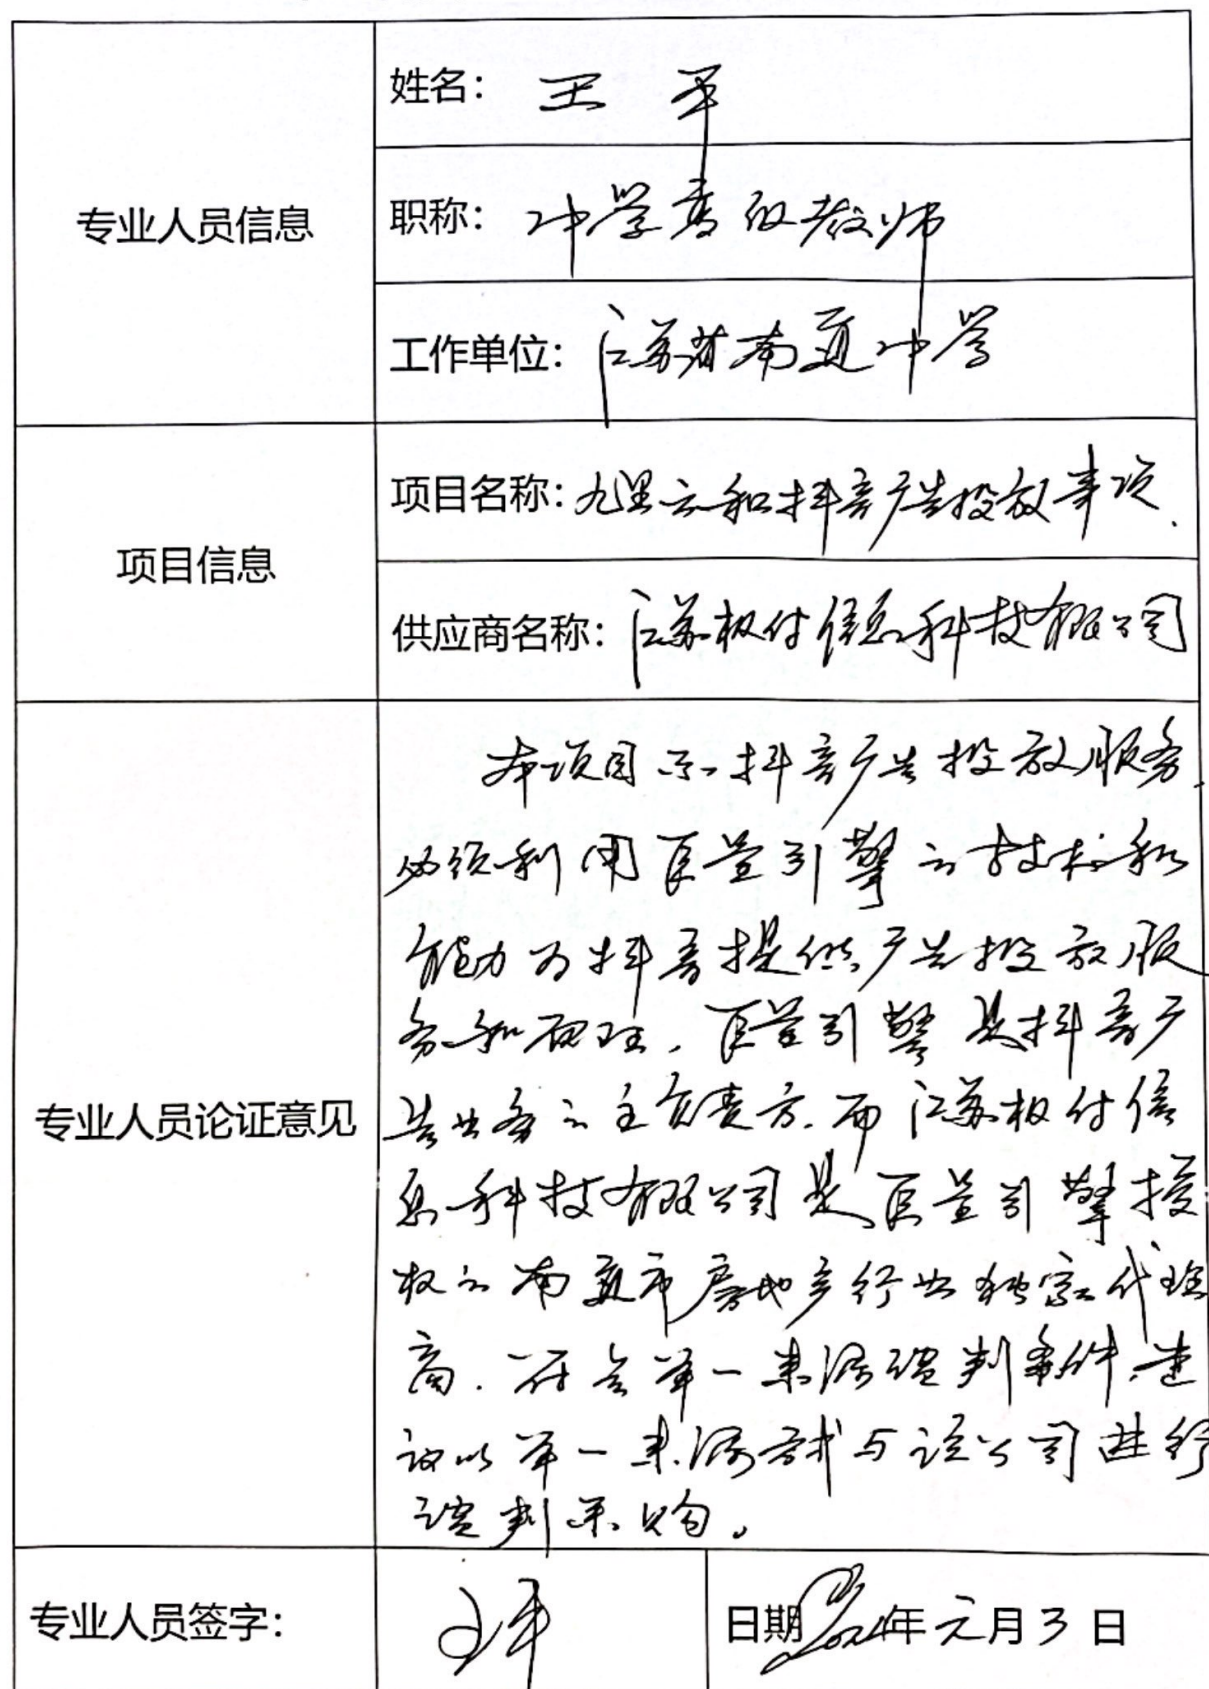 姓名：王平
专业人员信息
职称：中学高级教师
工作单位：江苏省南通中学
项目信息
项目名称：九里云和抖音广告投放事项.
供应商名称：江苏极付信息科技有限公司
专业人员论证意见
本项目系抖音广告投放服务,
必须利用巨量引擎之技术和
能力为抖音提供广告投放服
务和管理. 巨量引擎是抖音广
告业务之主负责方.而江苏极付信
息科技有限公司是巨量引擎授
权之南通市房地产行业独家代理
商.符合单一来源谈判条件.建
议以单一来源方式与该公司进行
谈判采购。
专业人员签字：王平
日期2024年元月3日